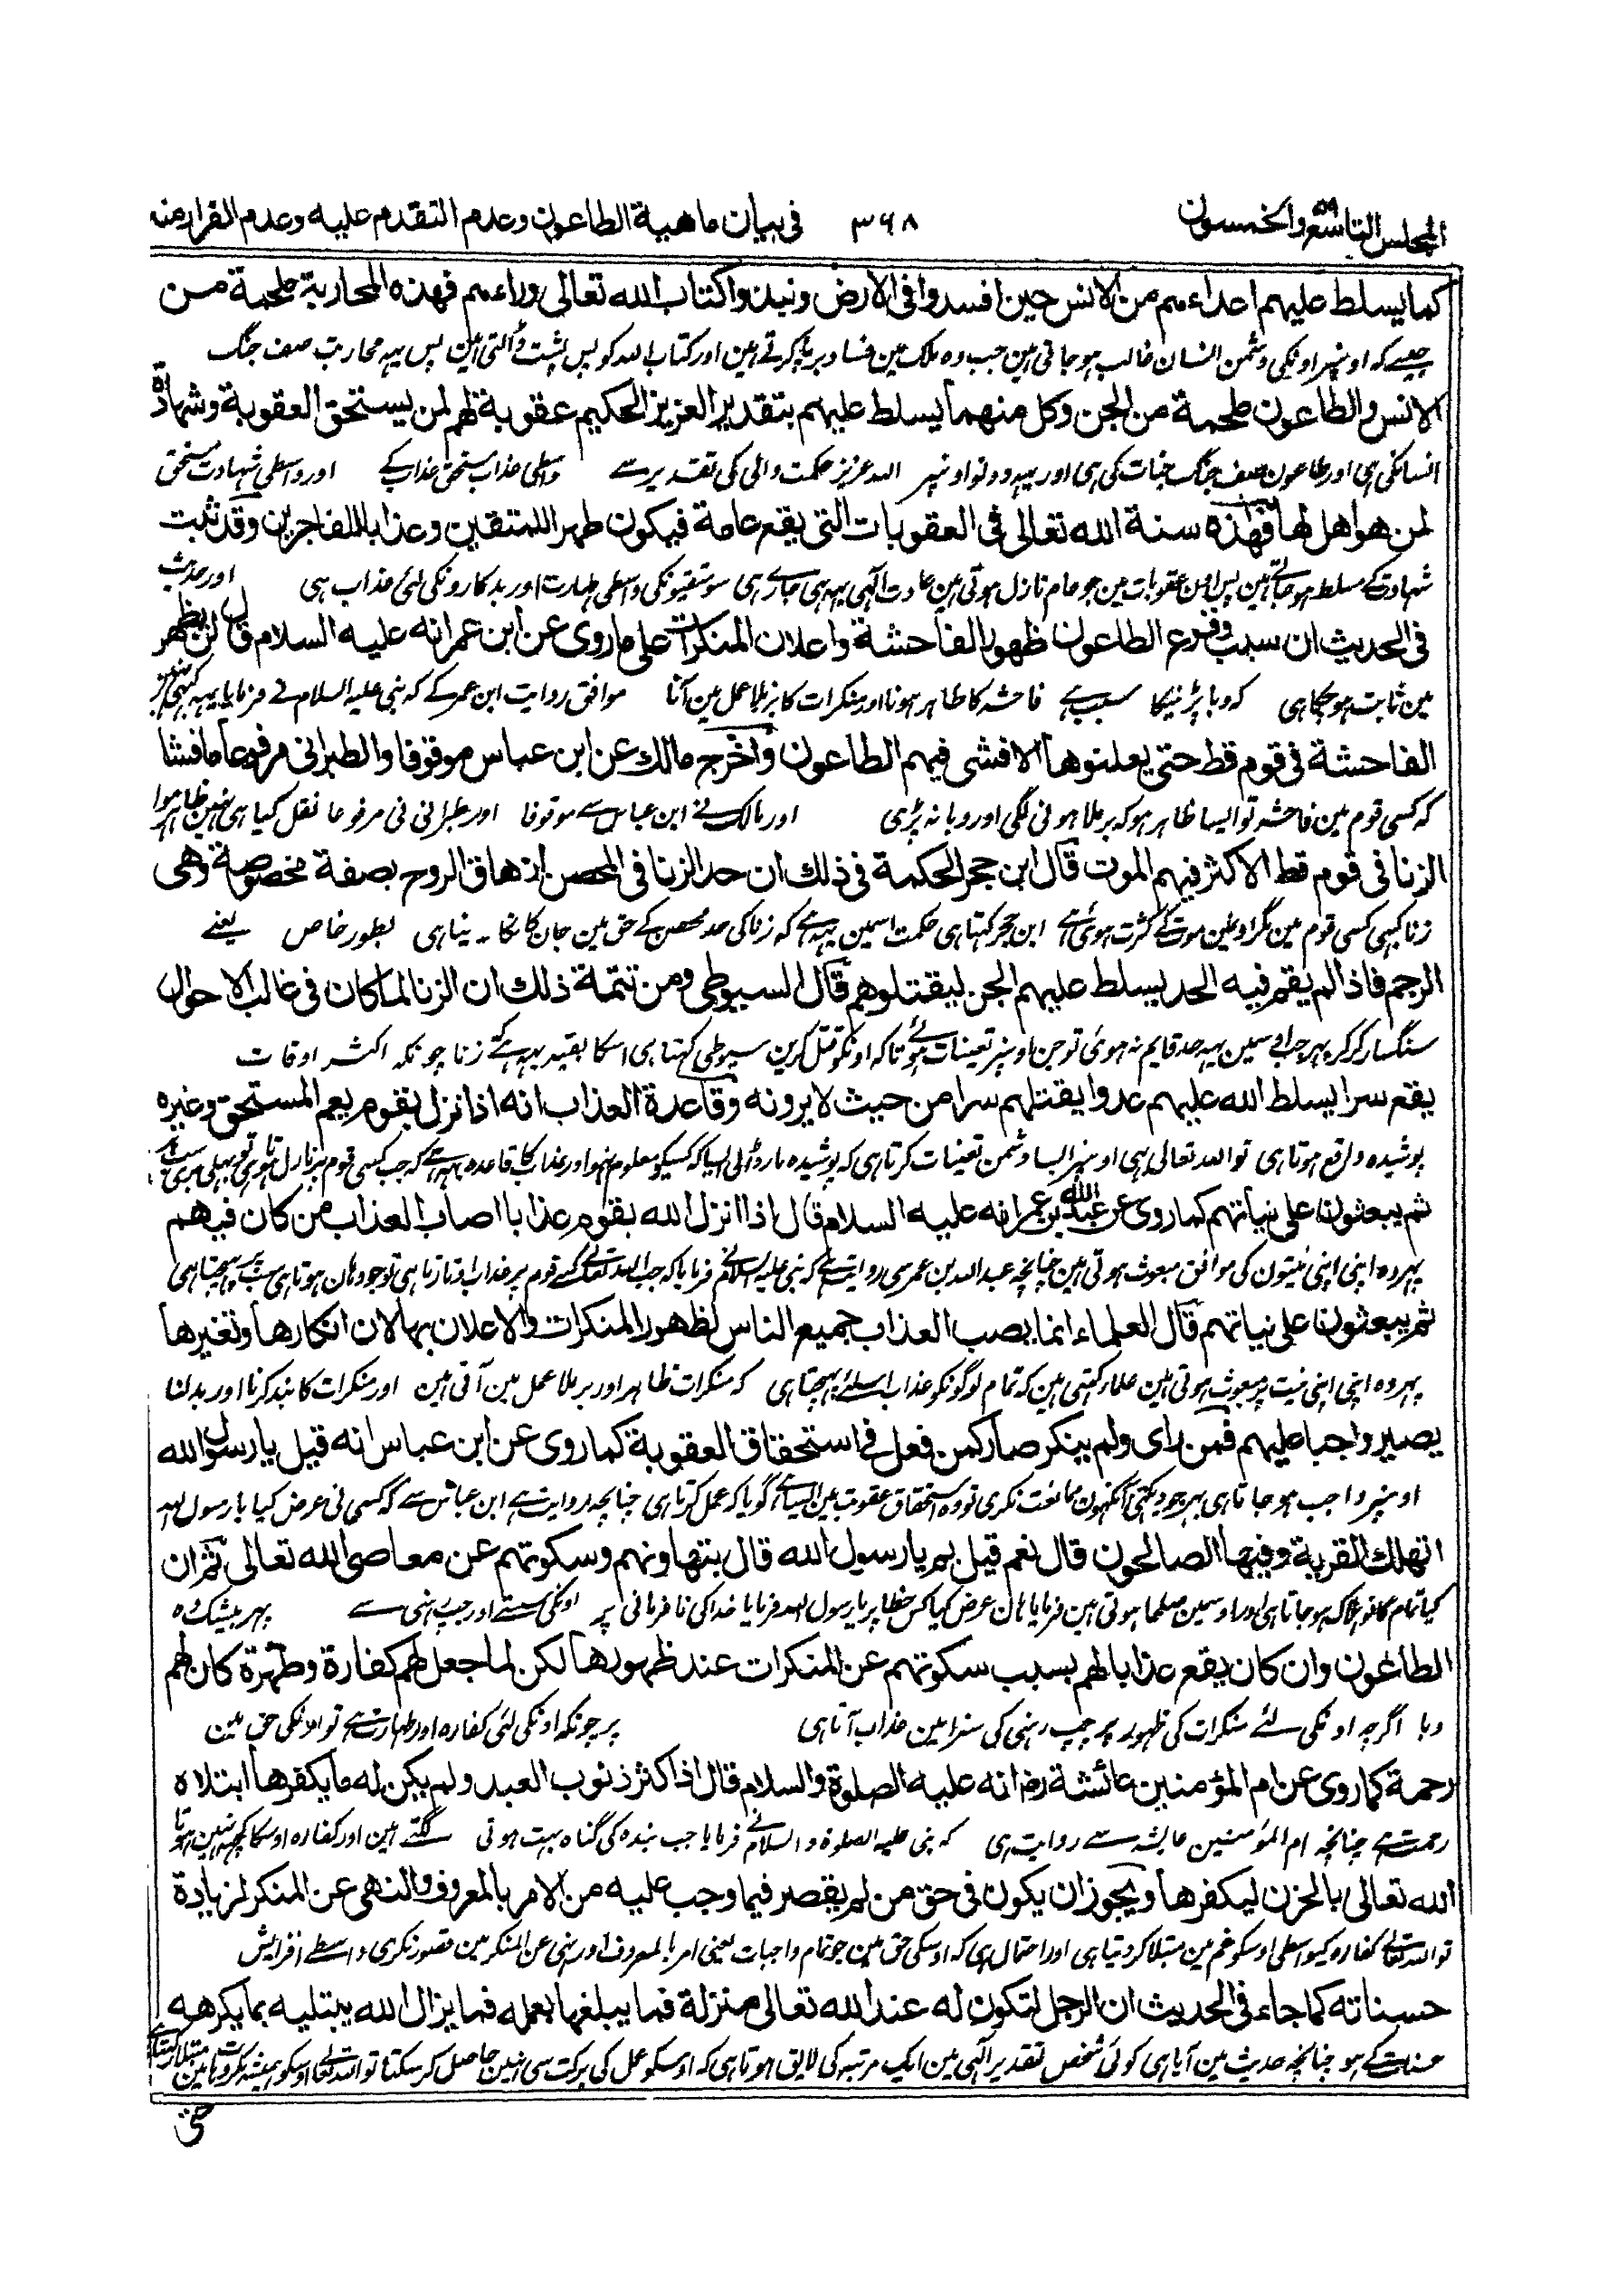 المجلس التاسع والخمسون ٣٦٨ فی بیان ماهیة الطاعون وعدم التقدم علیه وعدم الفرار منه
كما يسلط عليهم اعداءهم من الانس حين افسدوا فی الارض ونبذوا كتاب الله تعالى وراءهم فهذه المحاربة ملحمة من
جیسے کہ اونپر اونکی دشمن انسان غالب ہو جاتی ہین جب وہ ملک مین فساد برپا کرتے ہین اور کتاب اللہ کو پس پشت ڈالتی ہین پس یہہ محاربت صف جنگ
الانس والطاعون ملحمة من الجن وكل منهما يسلط عليهم بتقدير العزيز الحكيم عقوبة لهم لمن يستحق العقوبة وشهادة
انسانکی ہی اور طاعون صف جنگ جنات کی ہی اور یہہ دونو اونپر اللہ عزیز حکمت والی کی تقدیر سے واسطی عذاب مستحق عذاب کے اور واسطی شہادت مستحق
لمن هو اهل لها فهذه سنة الله تعالى فی العقوبات التی يقع عامة فيكون طهرا للمتقين وعذابا للفاجرين وقد ثبت
شہادت کے مسلط ہو جاتے ہین پس ان عقوبات مین جو عام نازل ہوتی ہین عادت الٰہی یہہ ہی جاری ہی سو متقیونکی واسطی طہارت اور بدکارونکی لئی عذاب ہی اور حدیث
فی الحديث ان سبب وقوع الطاعون ظهور الفاحشة واعلان المنكرات على ما روى عن ابن عمر انه عليه السلام قال لن يظهر
مین ثابت ہو چکا ہی کہ وبا پڑنیکا سبب ہے فاحشہ کا ظاہر ہونا اور منکرات کا برملا عمل مین آنا موافق روایت ابن عمر کے کہ نبی علیہ السلام نے فرمایا یہہ کبہی نہین
الفاحشة فی قوم قط حتى يعلنوها الا فشى فيهم الطاعون واخرج مالك عن ابن عباس موقوفا والطبرانی مرفوعا ما فشا
کہ کسی قوم مین فاحشہ تو ایسا ظاہر ہو کہ برملا ہونی لگی اور وبا نہ پڑی اور مالک نے ابن عباس سے موقوفا اور طبرانی نی مرفوعا نقل کیا ہی نہین ظاہر ہوا
الزنا فی قوم قط الا كثر فيهم الموت قال ابن حجر الحكمة فی ذلك ان حد الزنا فی المحصن ازهاق الروح بصفة مخصوصة وهى
زنا کبہی کسی قوم مین مگر اونمین موت کے کثرت ہوئی ہے ابن حجر کہتا ہی حکمت اسمین یہہ ہے کہ زنا کی حد محصن کے حق مین جان کا نکالینا ہی بطور خاص یعنے
الرجم فاذا لم يقم فيه الحد يسلط عليهم الجن ليقتلوهم قال السيوطى ومن تتمة ذلك ان الزنا لما كان فی غالب الاحوال
سنگسار کر کر پہر جب اوسمین یہہ حد قایم نہ ہوئی تو جن اونپر تعینات ہوئے تاکہ اونکو قتل کرین سیوطی کہتا ہی اسکا بقیہ یہہ ہے کہ زنا چونکہ اکثر اوقات
يقع سرا يسلط الله عليهم عدوا يقتلهم سرا من حيث لا يرونه وقاعدة العذاب انه اذا نزل بقوم يعم المستحق وغيره
پوشیدہ واقع ہوتا ہی تو اللہ تعالی بہی اونپر ایسا دشمن تعینات کرتا ہی کہ پوشیدہ مار ڈالی ایسا کہ کسیکو معلوم نہو اور عذاب کا قاعدہ یہہ ہے کہ جب کسی قوم پر نازل ہوتا ہی
ثم يبعثون على نياتهم كما روى عن عبد الله بن عمر انه عليه السلام قال اذا انزل الله بقوم عذابا اصاب العذاب من كان فيهم
پہر وہ اپنی اپنی نیتون کی موافق مبعوث ہوتی ہین چنانچہ عبد اللہ بن عمر سی روایت ہے کہ نبی علیہ السلام نے فرمایا کہ جب اللہ تعالی کسی قوم پر عذاب اوتارتا ہی تو جو وہان ہوتا ہی سب پر پہنچتا ہی
ثم يبعثون على نياتهم قال العلماء انما يصب العذاب جميع الناس لظهور المنكرات والاعلان بها لان انكارها وتغيرها
پہر وہ اپنی اپنی نیت پر مبعوث ہوتی ہین علماء کہتی ہین کہ تمام لوگونکو عذاب اسلئے پہنچتا ہی کہ منکرات ظاہر اور برملا عمل مین آتی ہین اور منکرات کا بند کرنا اور بدلنا
يصير واجبا عليهم فمن رای ولم ينكر صار كمن فعل فی استحقاق العقوبة كما روى عن ابن عباس انه قيل يا رسول الله
اونپر واجب ہو جاتا ہی پہر جو دیکہتی آنکہون ممانعت نکری تو وہ استحقاق عقوبت مین ایسا ہے گویا کہ عمل کرتا ہی چنانچہ روایت ہے ابن عباس سے کہ کسی نی عرض کیا یا رسول اللہ
اتهلك القرية وفيها الصالحون قال نعم قيل بم يا رسول الله قال بتهاونهم وسكوتهم عن معاصى الله تعالى ثم ان
کیا تمام گانو ہلاک ہو جاتا ہی اور اوسمین صلحا ہوتی ہین فرمایا ہان عرض کیا کس خطا پر یا رسول اللہ فرمایا خدا کی نافرمانی پر اونکی سستے اور چپ رہنی سے پہر بیشک وہ
الطاعون وان كان يقع عذابا لهم بسبب سكوتهم عن المنكرات عند ظهورها لكن لما جعل لهم كفارة وطهرة كان لهم
وبا اگرچہ اونکی لئے منکرات کی ظہور پر چپ رہنی کی سزا مین عذاب آتا ہی پر چونکہ اونکی لئی کفارہ اور طہارت ہے تو اونکی حق مین
رحمة كما روى عن ام المؤمنين عائشة رض انه عليه الصلوة والسلام قال اذا كثر ذنوب العبد ولم يكن له ما يكفرها ابتلاه
رحمت ہے چنانچہ ام المؤمنین عایشہ سے روایت ہی کہ نبی علیہ الصلوۃ والسلام نے فرمایا جب بندہ کی گناہ بہت ہوتی لگتے ہین اور کفارہ اوسکا کچہہ نہین ہوتا
الله تعالى بالحزن ليكفرها ويجوز ان يكون فی حق من لم يقصر فيما وجب عليه من الامر بالمعروف والنهى عن المنكر لزيادة
تو اللہ تعالے کفارہ کیواسطی اوسکو غم مین مبتلا کر دیتا ہی اور احتمال ہی کہ اوسکی حق مین جو تمام واجبات یعنی امر بالمعروف اور نہی عن المنکر مین قصور نکری واسطے افزایش
حسناته كما جاء فی الحديث ان الرجل لتكون له عند الله تعالى منزلة فما يبلغها بعمله فما يزال الله يبتليه بما يكرهه
حسنات کے ہو چنانچہ حدیث مین آیا ہی کوئی شخص تقدیر الٰہی مین ایک مرتبہ کی لایق ہوتا ہی کہ اوسکو عمل کی برکت سی نہین حاصل کر سکتا تو اللہ تعالی اوسکو ہمیشہ مکروہات مین مبتلا رکہتا ہے
حتى